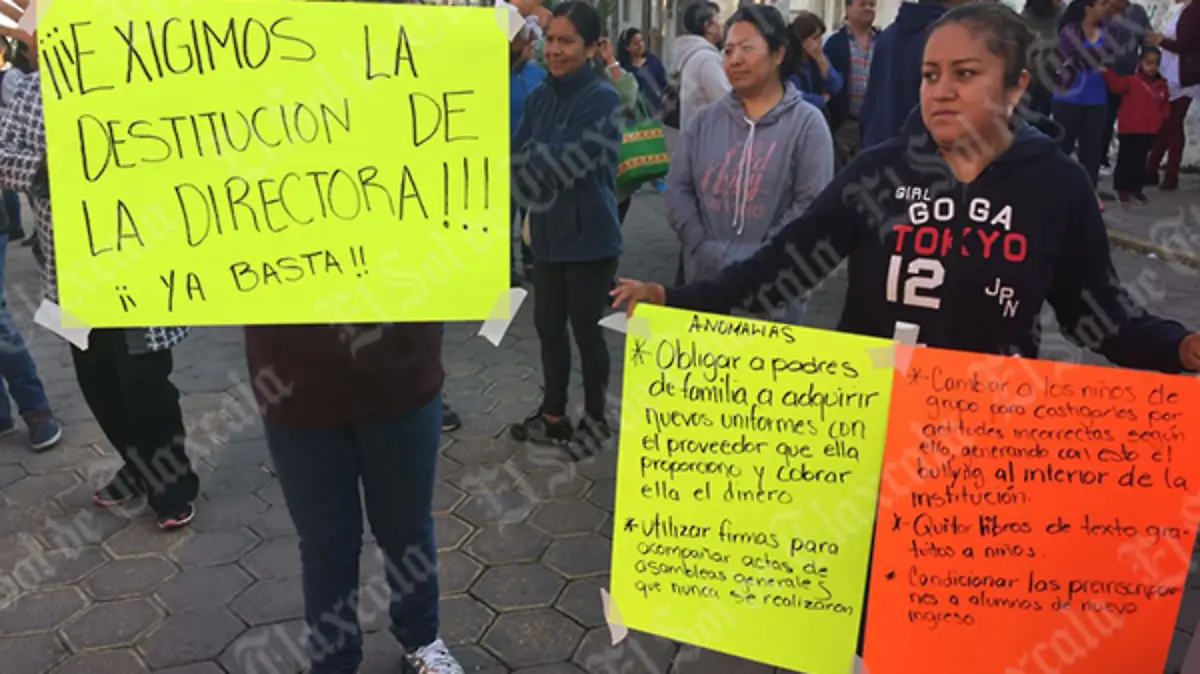 ¡¡¡EXIGIMOS LA
DESTITUCION DE
LA DIRECTORA!!!
¡¡YA BASTA!!
GIRL
GO GA
TOKYO
12
JPN
ANOMALIAS
* Obligar a padres
de familia a adquirir
nuevos uniformes con
el proveedor que ella
proporciono y cobrar
ella el dinero
* Utilizar firmas para
acompañar actas de
asambleas generales
que nunca se realizaron
*- Cambiar a los niños de
grupo para castigarlos por
actitudes incorrectas según
ella, generando con esto el
bullying al interior de la
institución.
*- Quitar libros de texto gra-
tuitos a niños.
* Condicionar las preinscripcio-
nes a alumnos de nuevo
ingreso
El Sol de Tlaxcala